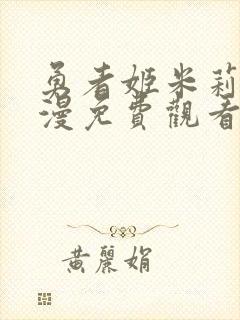 勇者姬米莉
漫免費觀看
黃麗娟